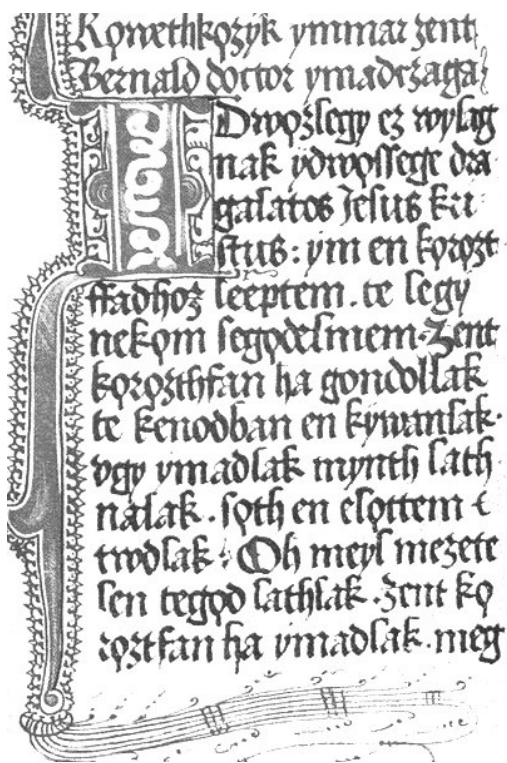 Kowethkozyk ymmar zent
Bernald doctor ymadczaga:
IDwozlegy ez wylag
nak ydwossege dra
galatos Jesus kri
stus: ym en korozt
ffadhoz leeptem. te legy
nekom segodelmem. Zent
korozthfan ha gondollak
te kenodban en kywanlak.
vgy ymadlak mynth lath
nalak. soth en elottem t
twdlak: Oh meyl mezete
len tegod lathlak. Zent ko
roztfan ha ymadlak. meg